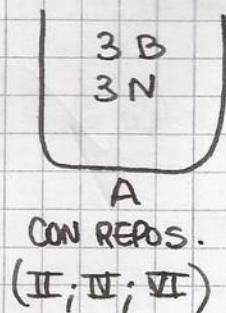 3 B
3 N
A
CON REPOS.
(II; IV; VI)